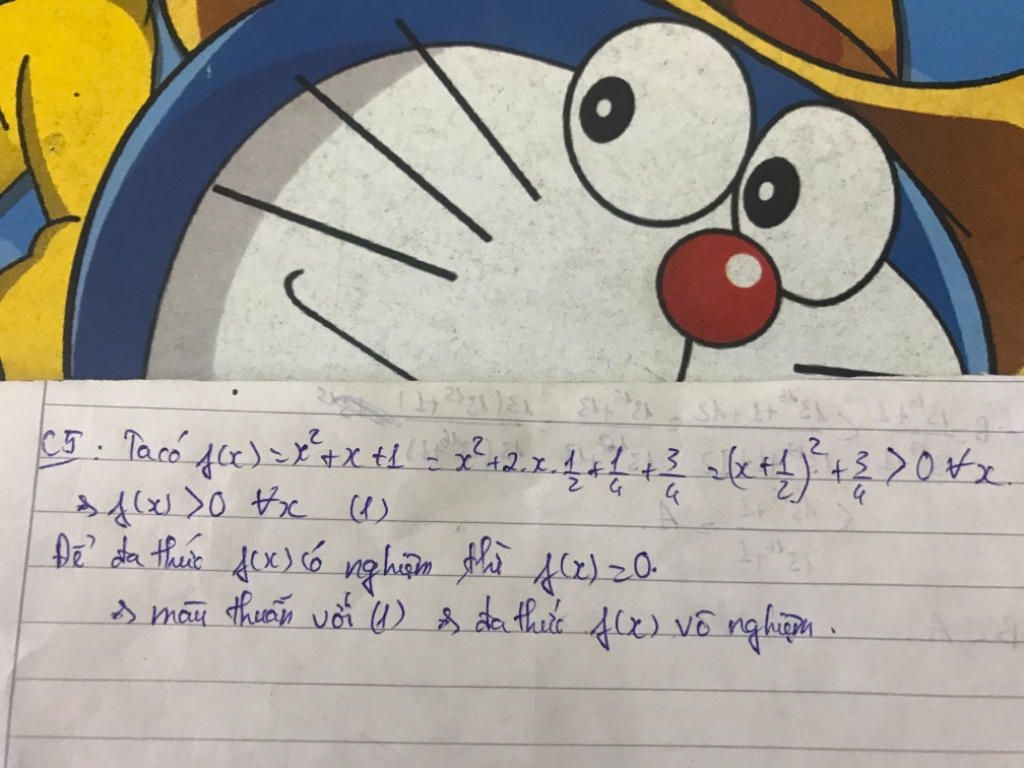 C5: Ta có f(x) = x² + x + 1 = x² + 2.x.1/2 + 1/4 + 3/4 = (x + 1/2)² + 3/4 > 0 ∀x.
=> f(x) > 0 ∀x (1)
Để đa thức f(x) có nghiệm thì f(x) = 0.
=> mâu thuẫn với (1) => đa thức f(x) vô nghiệm.